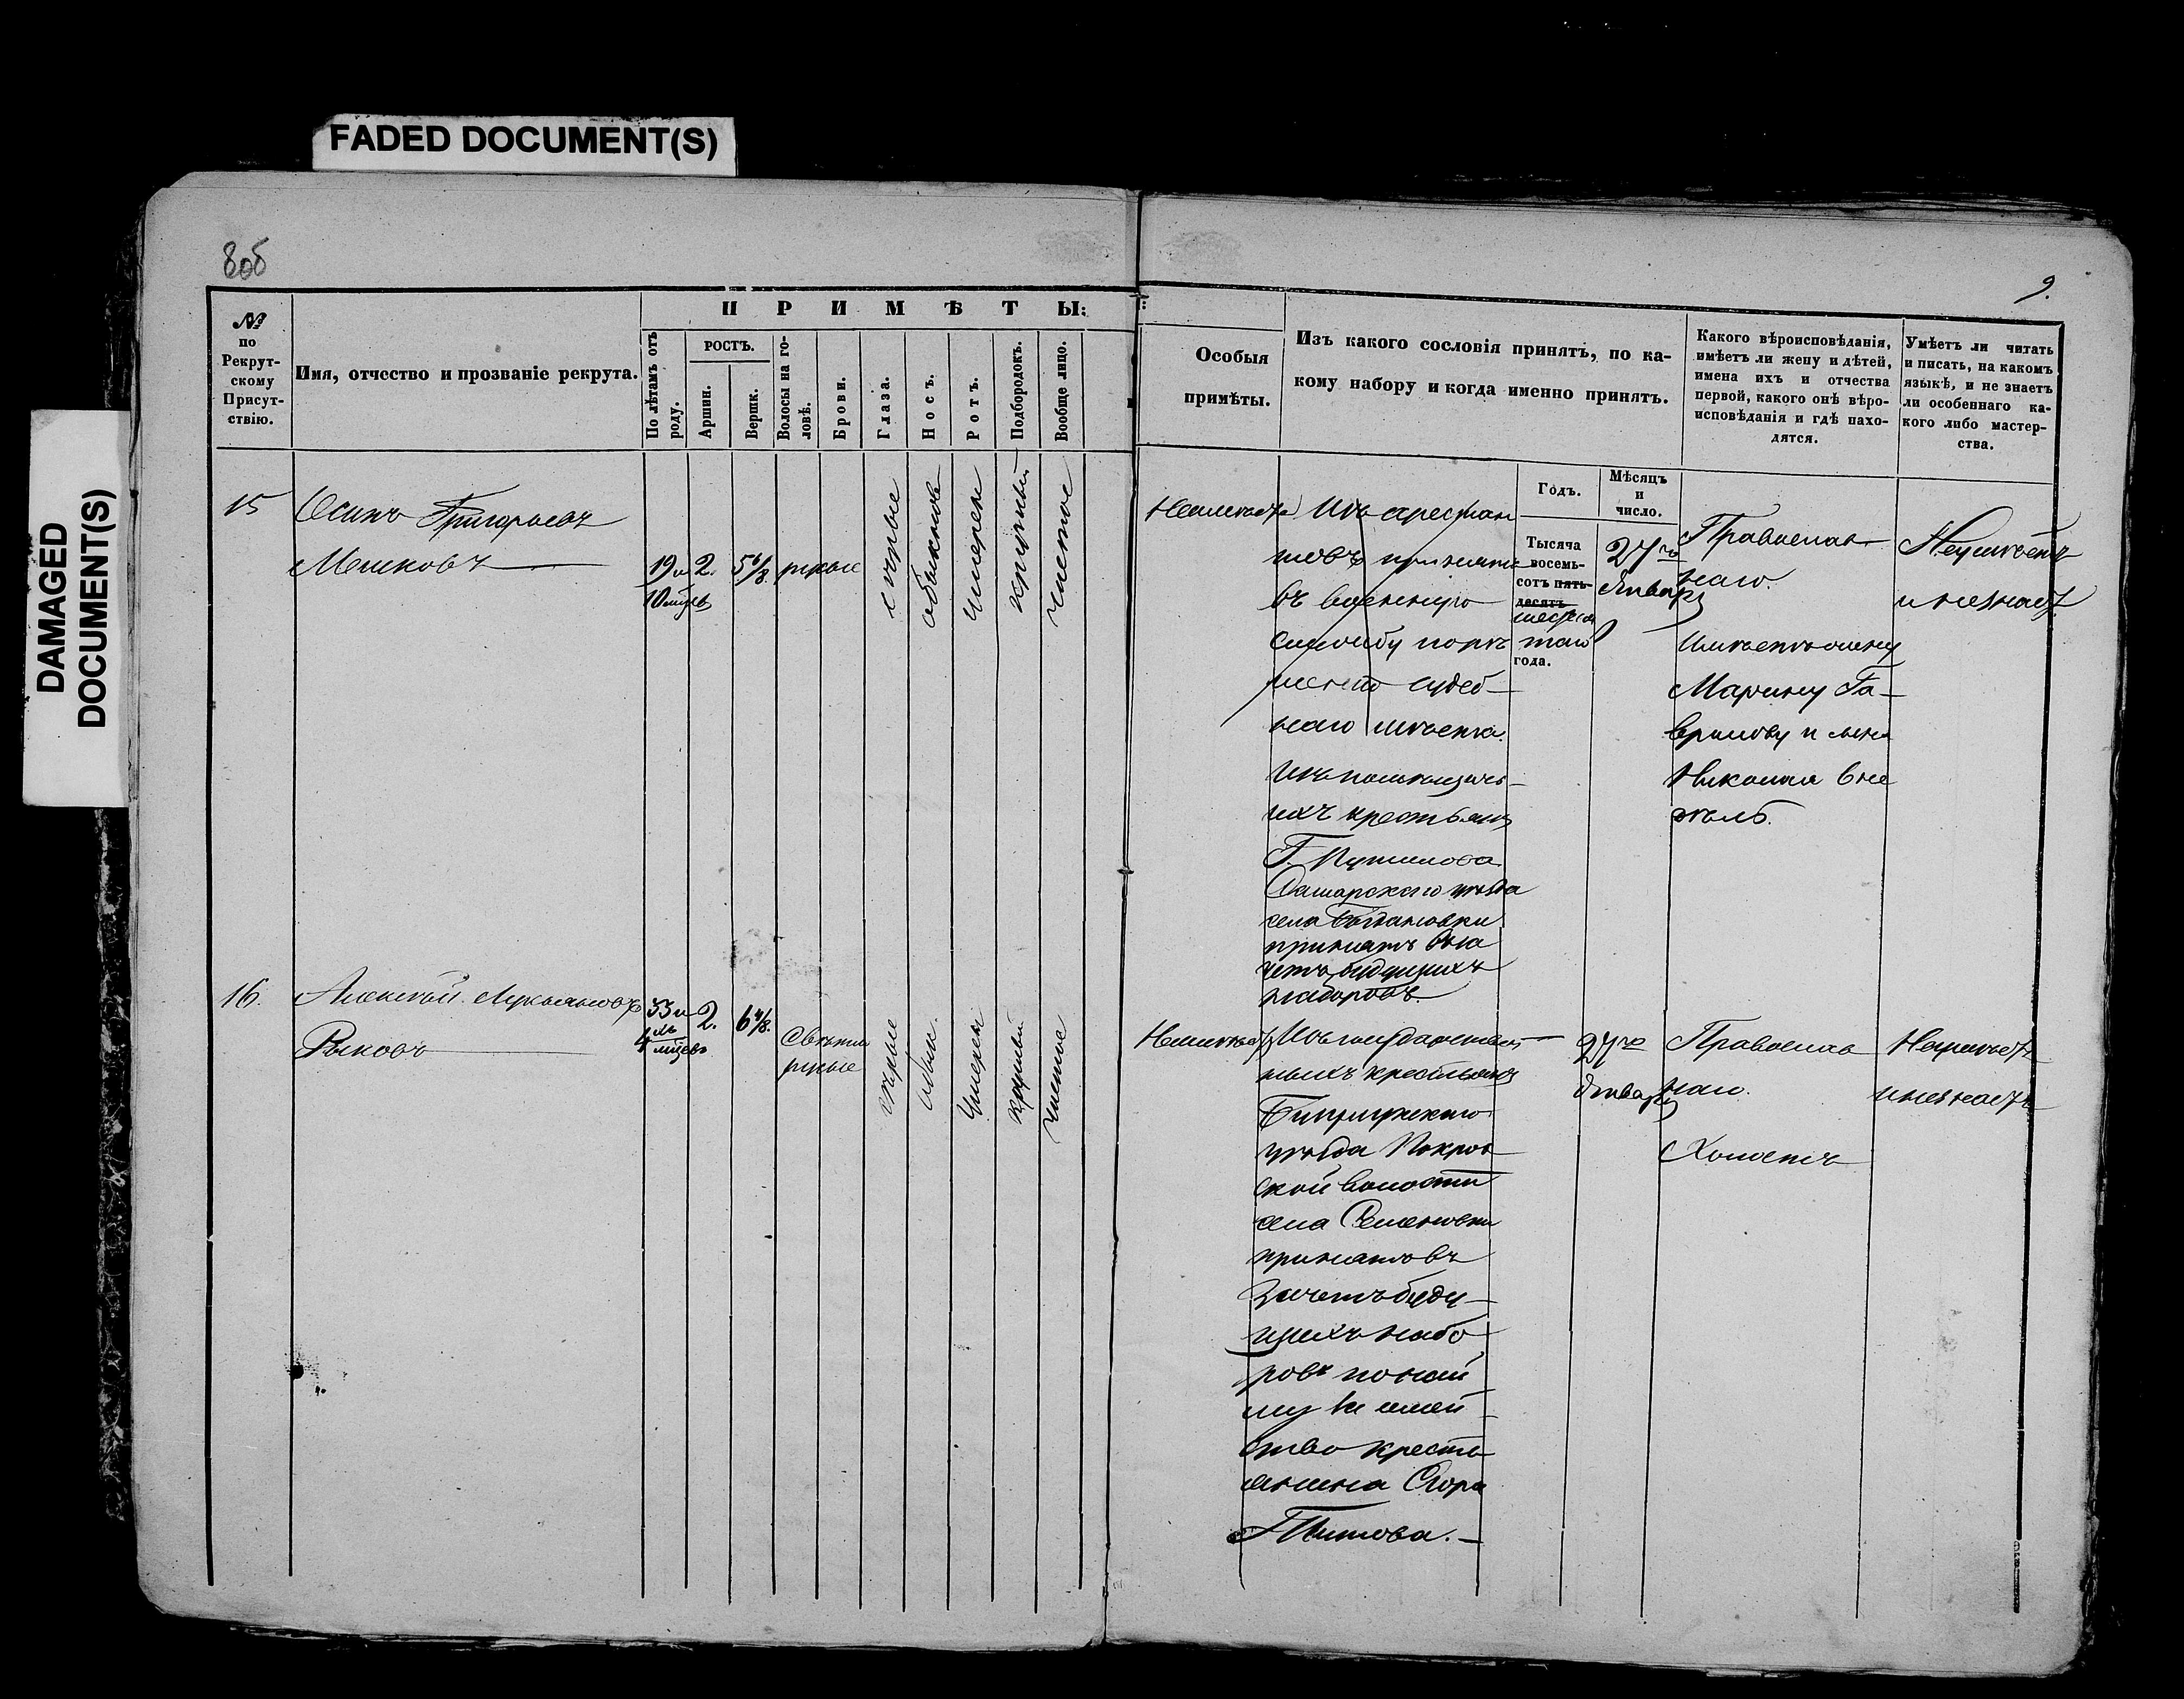 FADED DOCUMENT(S)
DAMAGED
DOCUMENT(S)
8об
9.
№
по
Рекрут-
скому
Присут-
ствію.
Имя, отчество и прозваніе рекрута.
ПРИМѢТЫ:
По лѣтамъ отъ
роду.
РОСТЪ.
Аршин.
Вершк.
Волосы на го-
ловѣ.
Брови.
Глаза.
Носъ.
Ротъ.
Подбородокъ.
Вообще лицо.
Особыя
примѣты.
Изъ какого сословія принятъ, по ка-
кому набору и когда именно принятъ.
Какого вѣроисповѣданія,
имѣетъ ли жену и дѣтей,
имена ихъ и отчества
первой, какого онѣ вѣро-
исповѣданія и гдѣ нахо-
дятся.
Умѣетъ ли читать
и писать, на какомъ
языкѣ, и не знаетъ
ли особеннаго ка-
кого либо мастер-
ства.
Годъ.
Мѣсяцъ
и
число.
15
Осипъ Григорьевъ
Мешковъ
19 и
10 мцвъ
2.
5 6/8.
русые
сѣрые
обыкнов
умѣрен
круглый
чистое
Неимѣетъ
Изъ арестан
товъ принятъ
въ военную
службу
судеб-
наго мѣста.
Изъ помѣщичь-
ихъ крестьянъ
Г. Путилова
Самарскаго уѣзда
села Богдановки
принятъ въ за
четъ будущихъ
наборовъ.
Тысяча
восемь-
сотъ пять-
десятъ
шестьдеся
таго
года.
27го
Января
Православ
наго.
Имѣетъ жену
Марину Га-
врилову и сына
Николая 6 не
дѣль.
Неумѣетъ
и незнает.
16.
Алексѣй Лукьяновъ
Рыковъ
33 и
4 мцевъ
2.
6 4/8.
Свѣтло
русые
сѣрые
обык.
Умерен
круглый
Чистое
Неимѣетъ
Изъ государствен
ныхъ крестьянъ
Бугурусланскаго
уѣзда Покров
ской волости
села Семеновки
принятъ въ
зачетъ буду-
щихъ набо
ровъ по най
му за семей-
ство кресть
янина Егора
Титова.
27го
Января
Православ
наго.
Холостъ
Неумѣетъ
и незнаетъ